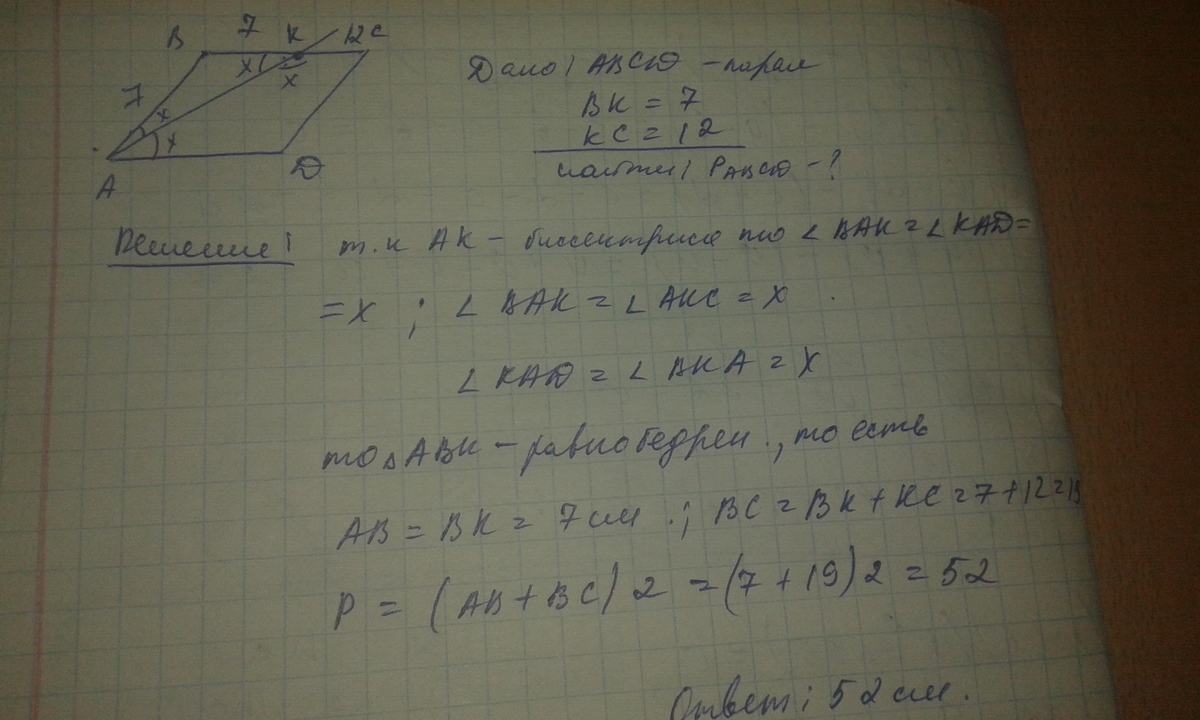 B 7 K 12 C
7 x x x x
A D
Дано: ABCD - парал
BK = 7
KC = 12
найти: PABCD - ?
Решение: т.к AK - биссектриса то ∠ BAK = ∠ KAD =
= x ; ∠ BAK = ∠ AKC = x .
∠ KAD = ∠ BKA = x
то △ ABK - равнобедрен., то есть
AB = BK = 7 см .; BC = BK + KC = 7 + 12 = 19
P = (AB + BC) 2 = (7 + 19) 2 = 52
Ответ: 52 см.